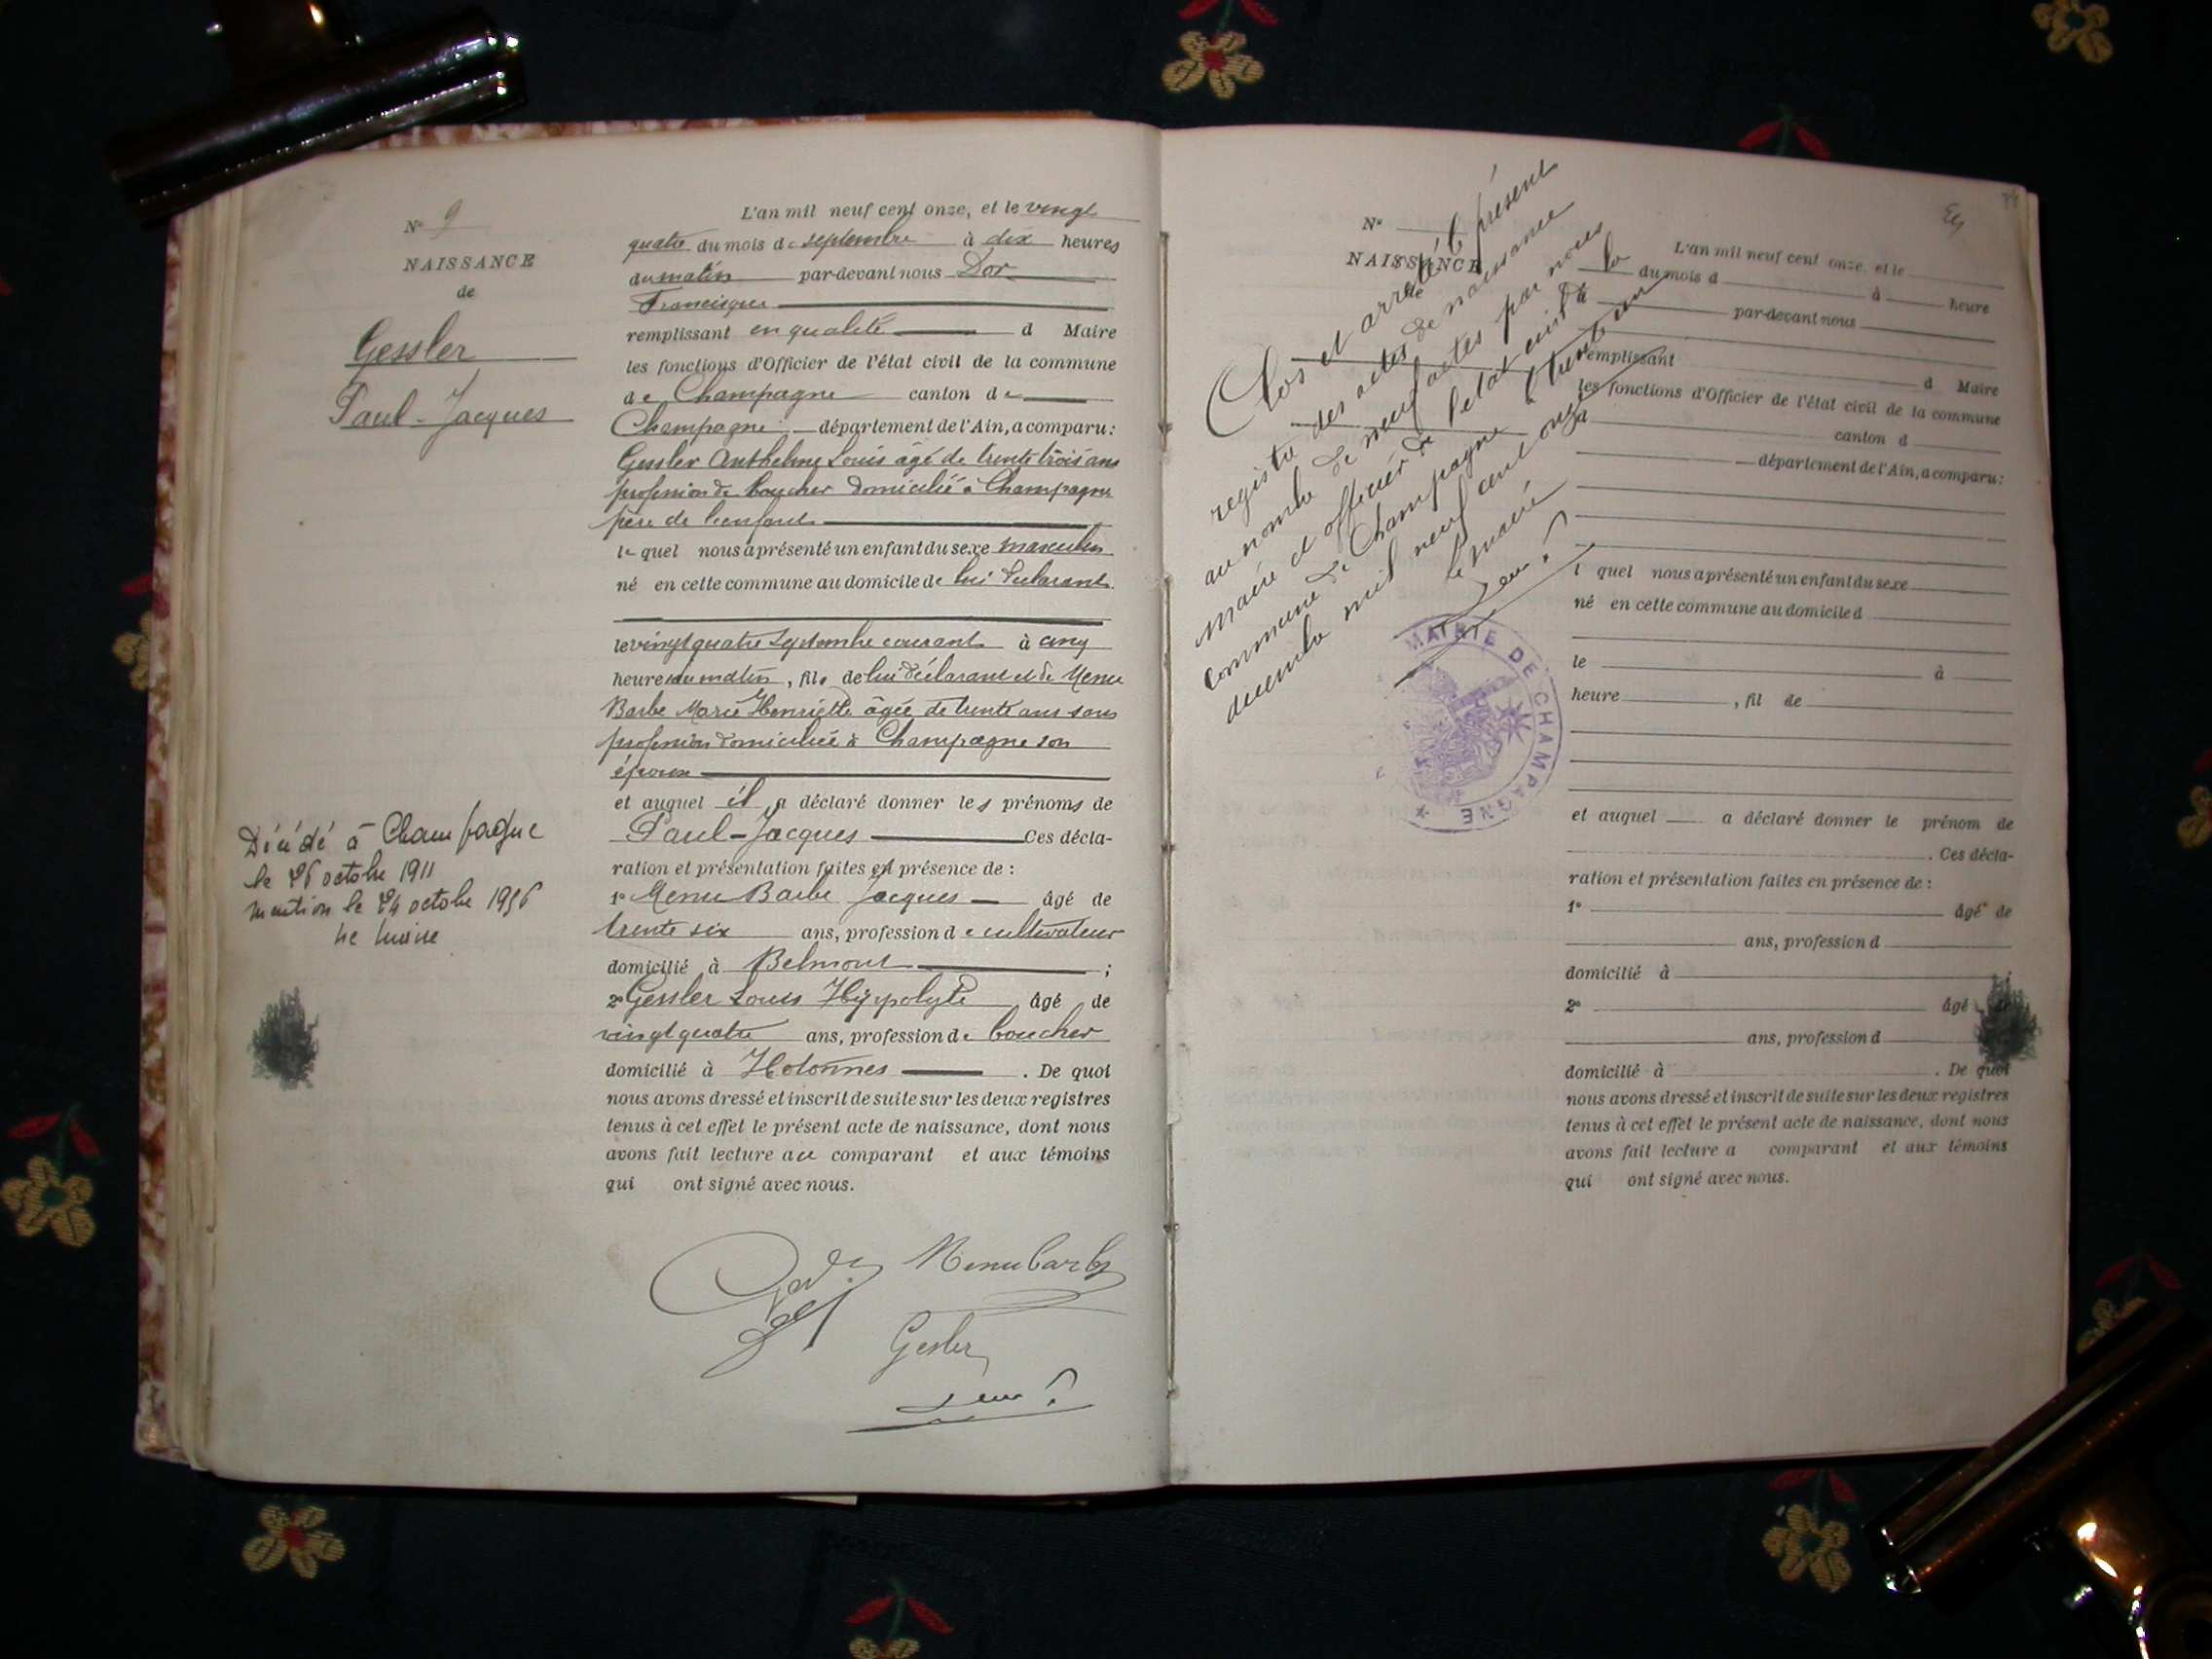 N° 9
NAISSANCE
de
Gessler
Paul-Jacques
L'an mil neuf cent onze, et le vingt
quatre du mois de septembre à dix heures
du matin par-devant nous Dor
Francisque
remplissant en qualité d Maire
les fonctions d'Officier de l'état civil de la commune
de Champagne canton de
Champagne département de l'Ain, a comparu:
Gessler Anthelme Louis âgé de trente trois ans
profession de boucher domicilié à Champagne
père de l'enfant
le quel nous a présenté un enfant du sexe masculin
né en cette commune au domicile de lui déclarant
le vingt quatre septembre courant à cinq
heures du matin, fils de lui déclarant et de Menu
Barbe Marie Henriette âgée de trente ans sans
profession domiciliée à Champagne son
épouse
et auquel il a déclaré donner les prénoms de
Paul-Jacques Ces décla-
ration et présentation faites en présence de :
1° Menu Barbe Jacques âgé de
trente six ans, profession de cultivateur
domicilié à Belmont ;
2° Gessler Louis Hippolyte âgé de
vingt quatre ans, profession de boucher
domicilié à Hotonnes . De quoi
nous avons dressé et inscrit de suite sur les deux registres
tenus à cet effet le présent acte de naissance, dont nous
avons fait lecture au comparant et aux témoins
qui ont signé avec nous.
Décédé à Champagne
le 26 octobre 1911
mention le 24 octobre 1956
Le maire
Menu barbe
Gesler
N°
NAISSANCE
de
Clos et arrêté le présent
registre des actes de naissance
au nombre de neuf actes par nous
maire et officier de l'état civil de la
commune de Champagne le trente un
décembre mil neuf cent onze
le maire
MAIRIE DE CHAMPAGNE
L'an mil neuf cent onze, et le
du mois d à heure
par-devant nous
remplissant d Maire
les fonctions d'Officier de l'état civil de la commune
d canton d
département de l'Ain, a comparu:
l quel nous a présenté un enfant du sexe
né en cette commune au domicile d
le à
heure , fil de
et auquel a déclaré donner le prénom de
. Ces décla-
ration et présentation faites en présence de :
1° âgé de
ans, profession d
domicilié à ;
2° âgé de
ans, profession d
domicilié à . De quoi
nous avons dressé et inscrit de suite sur les deux registres
tenus à cet effet le présent acte de naissance, dont nous
avons fait lecture a comparant et aux témoins
qui ont signé avec nous.